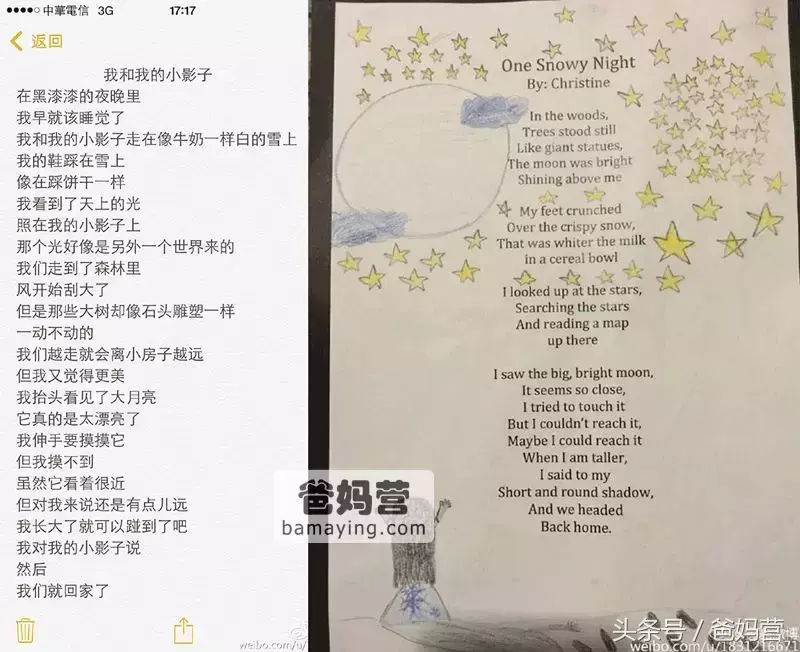 中華電信 3G 17:17
返回
我和我的小影子
在黑漆漆的夜晚里
我早就该睡觉了
我和我的小影子走在像牛奶一样白的雪上
我的鞋踩在雪上
像在踩饼干一样
我看到了天上的光
照在我的小影子上
那个光好像是另外一个世界来的
我们走到了森林里
风开始刮大了
但是那些大树却像石头雕塑一样
一动不动的
我们越走就会离小房子越远
但我又觉得更美
我抬头看见了大月亮
它真的是太漂亮了
我伸手要摸摸它
但我摸不到
虽然它看着很近
但对我来说还是有点儿远
我长大了就可以踫到了吧
我对我的小影子说
然后
我们就回家了
weibo.com/u/
One Snowy Night
By: Christine
In the woods,
Trees stood still
Like giant statues,
The moon was bright
Shining above me
My feet crunched
Over the crispy snow,
That was whiter the milk
in a cereal bowl
I looked up at the stars,
Searching the stars
And reading a map
up there
I saw the big, bright moon,
It seems so close,
I tried to touch it
But I couldn't reach it,
Maybe I could reach it
When I am taller,
I said to my
Short and round shadow,
And we headed
Back home.
爸妈营
bamaying.com
头条号 / 爸妈营
weibo.com/u/1831216671